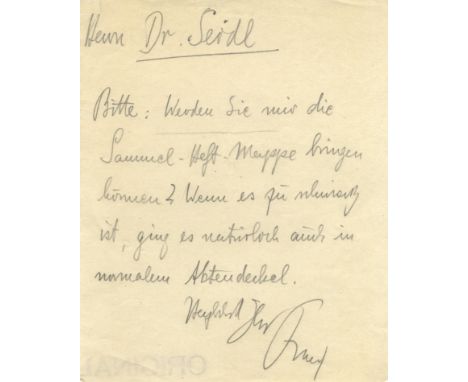 Herrn Dr. Seidl
Bitte: Werden Sie mir die
Sammel-Heft-Mappe bringen
können? Wenn es zu schwierig
ist, ging es natürlich auch in
normalem Aktendeckel.
Herzlichst Ihr
ORIGINAL